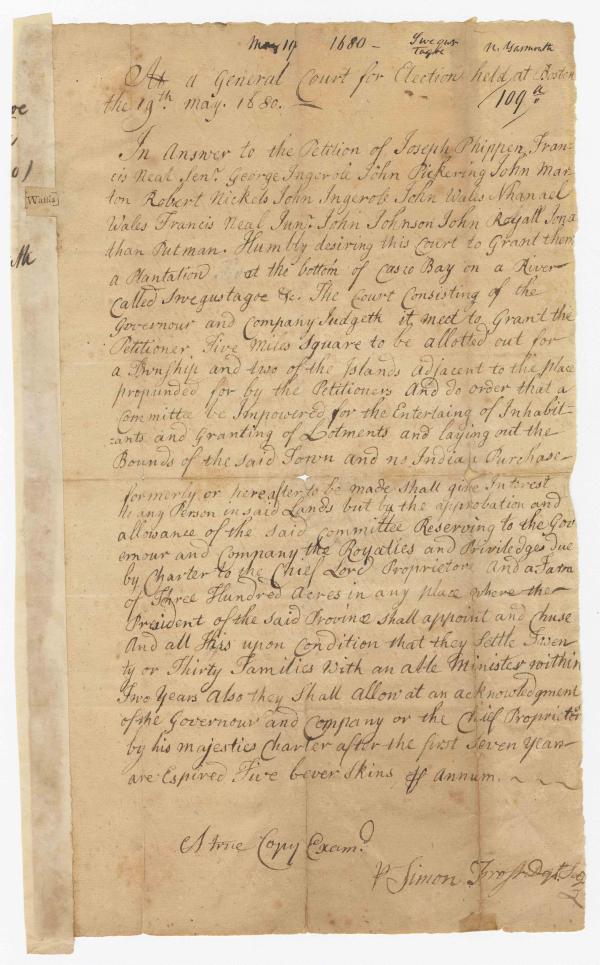 May 19 1680 - Swegus tagoe N. Yarmouth
At a General Court for Election held at Boston
the 19th. may. 1680. — 109a
In Answer to the Petition of Joseph Phippen, Fran-
cis Neal Senr. George Ingerole John Pickering John Mar-
ton Robert Nickels John Ingerole John Wales Nhanael
Wales Francis Neal Junr. John Johnson John Royall Jona
than Putman. Humbly desiring this Court to Grant them
a Plantation at the bottom of Casco Bay on a River
Called Swegustagoe &c. The Court Consisting of the
Governour and Company Judgeth it meet to Grant the
Petitioner Five Miles Square to be allotted out for
a Township and two of the Islands Adjacent to the place
propunded for by the Petitioners And do order that a
Committee be Impowered for the Entertaing of Inhabit-
=ants and Granting of Lotments and laying out the
Bounds of the said Town and no Indian Purchase
formerly or hereafter to be made shall give Interest
to any Person in said Lands but by the approbation and
allowance of the said Committee Reserving to the Gov
ernour and Company the Royalties and Priviledges due
by Charter to the Chief Lord Proprietor And a Farm
of Three Hundred Acres in any place where the
President of the said Province shall appoint and Chuse
And all this upon Condition that they Settle Twen
ty or Thirty Families with an able Minister within
Two Years Also they shall allow at an acknowledgment
of the Governour and Company or the Chief Proprietor
by his majesties Charter after the first Seven Years
are Expired Five bever skins ⅌ Annum.
A true Copy Examd
P Simon Frost Depy. Secry
Wallis